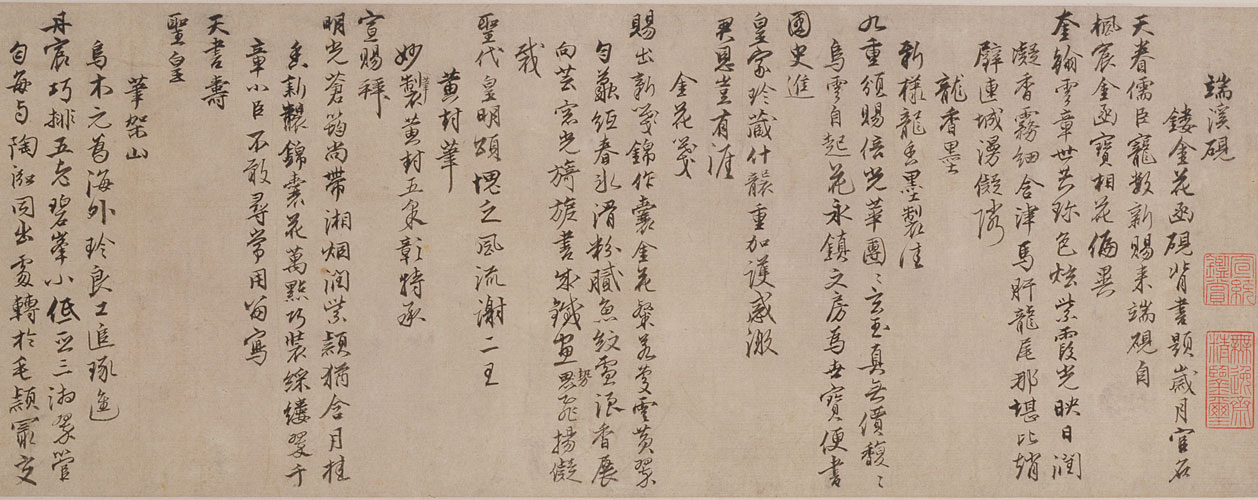 端溪硯
鏤金花函硯背書題歲月官名
天眷儒臣寵數新賜来端硯自
楓宸金函寶相花俪異
奎翰雲章世共珍色炫紫霞光映日潤
凝香霧細含津馬肝龍尾那堪比趙
璧連城漫儗隣
龍香墨
新樣龍香墨製佳
九重頒賜倍光華團〻玄玉真無價馥〻
烏雲自起花永鎮文房為世寶便書
國史進
皇家珍藏什襲重加護感激
君恩豈有涯
金花箋
賜出新箋錦作囊金花粲若雲黄翠
勻蠶紙春冰滑粉膩魚紋雪浪香展
向芸窗光旖旎書成鐵畫勢思飛揚儗
裁
聖代皇明頌愧乏風流謝二王
黄封筆
妙製黄封五采彰特承
宣賜拜
明光蒼筠尚帶湘烟潤紫穎猶含月桂
香新製錦囊花萬點巧裝綵縷翠千
章小臣不敢尋常用留寫
天書壽
聖皇
筆架山
烏木元為海外珍良工追琢進
丹宸巧排五老碧峯小低亞三湘翠管
勻每与陶泓同出處轉於毛穎最交
宣統鑒賞
無逸齋精鑒璽